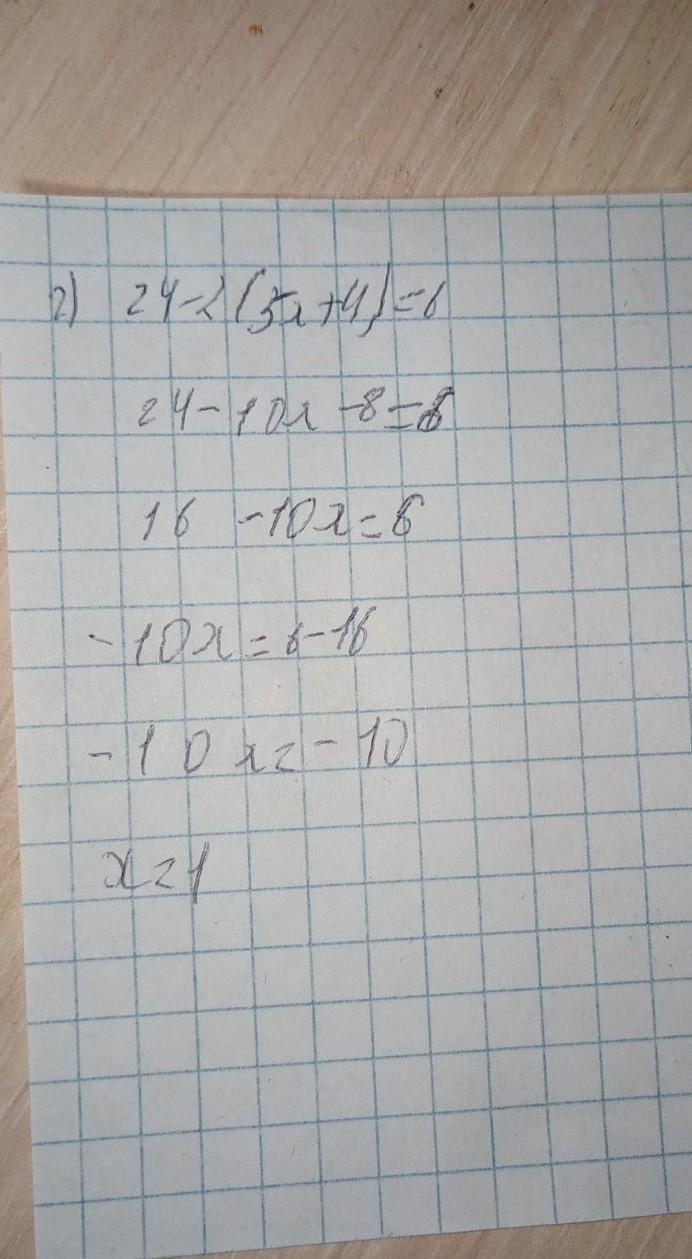 г) 24-2(5x+4)=6
24-10x-8=6
16 -10x=6
-10x=6-16
-10x=-10
x=1